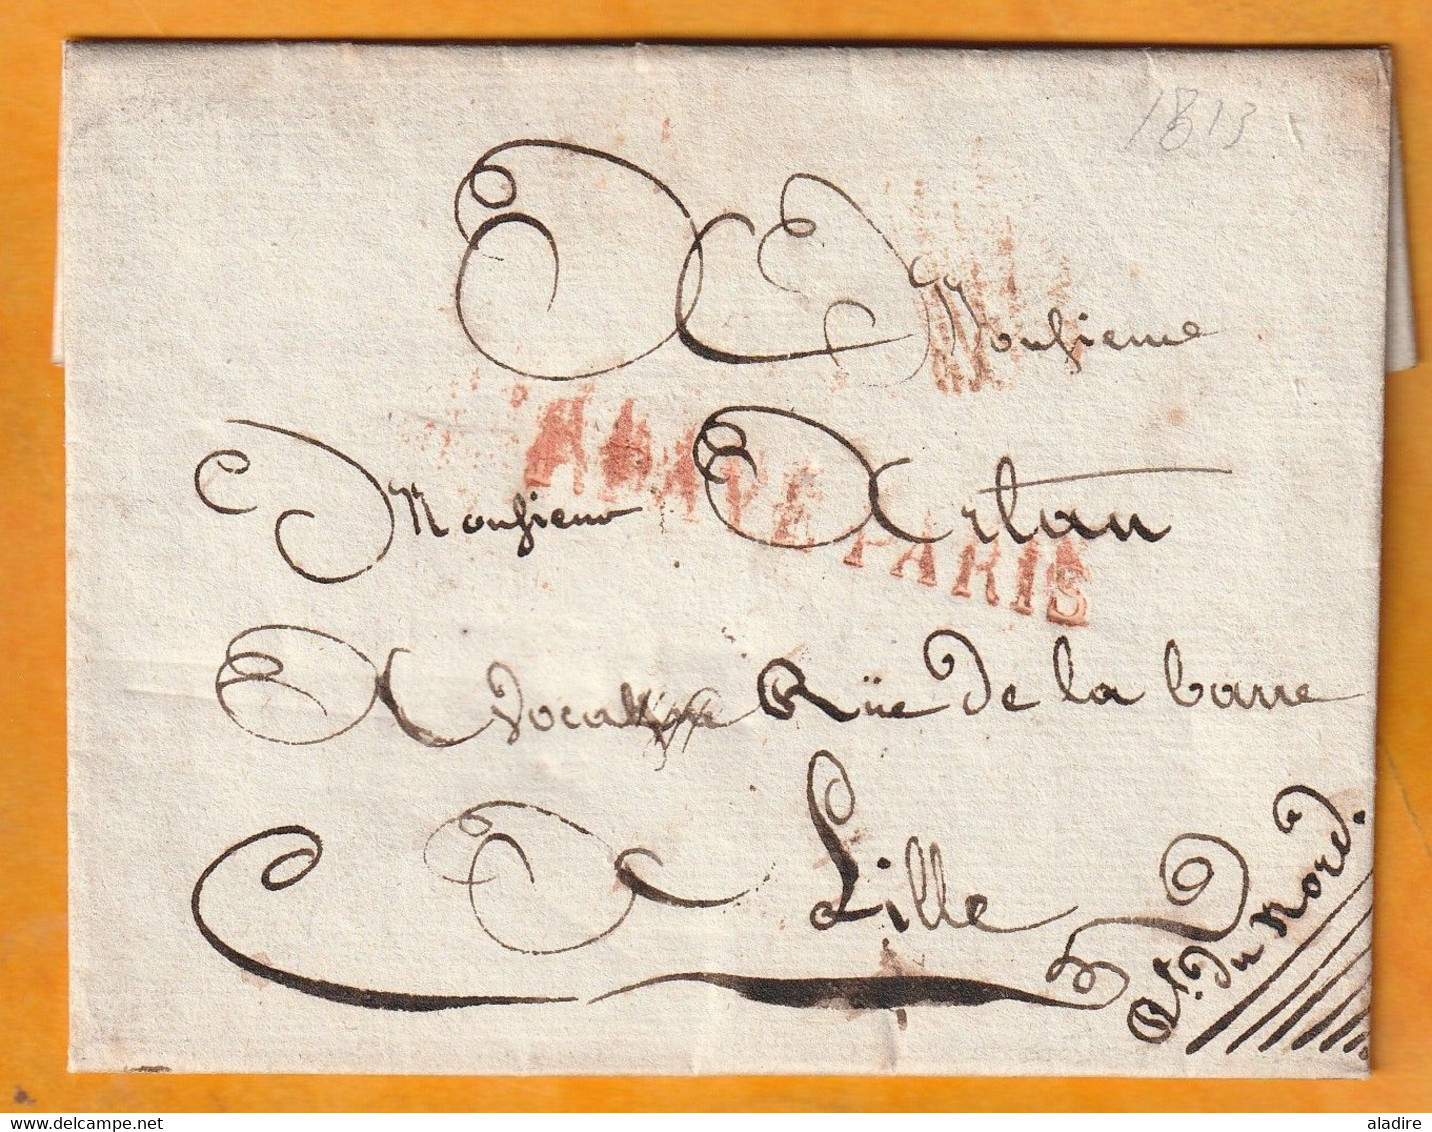 1813
A Monsieur
Monsieur Artan
Avocat Rüe De la barre
A Lille
Dt. Du Nord.
PARIS
aladire
delcampe.net